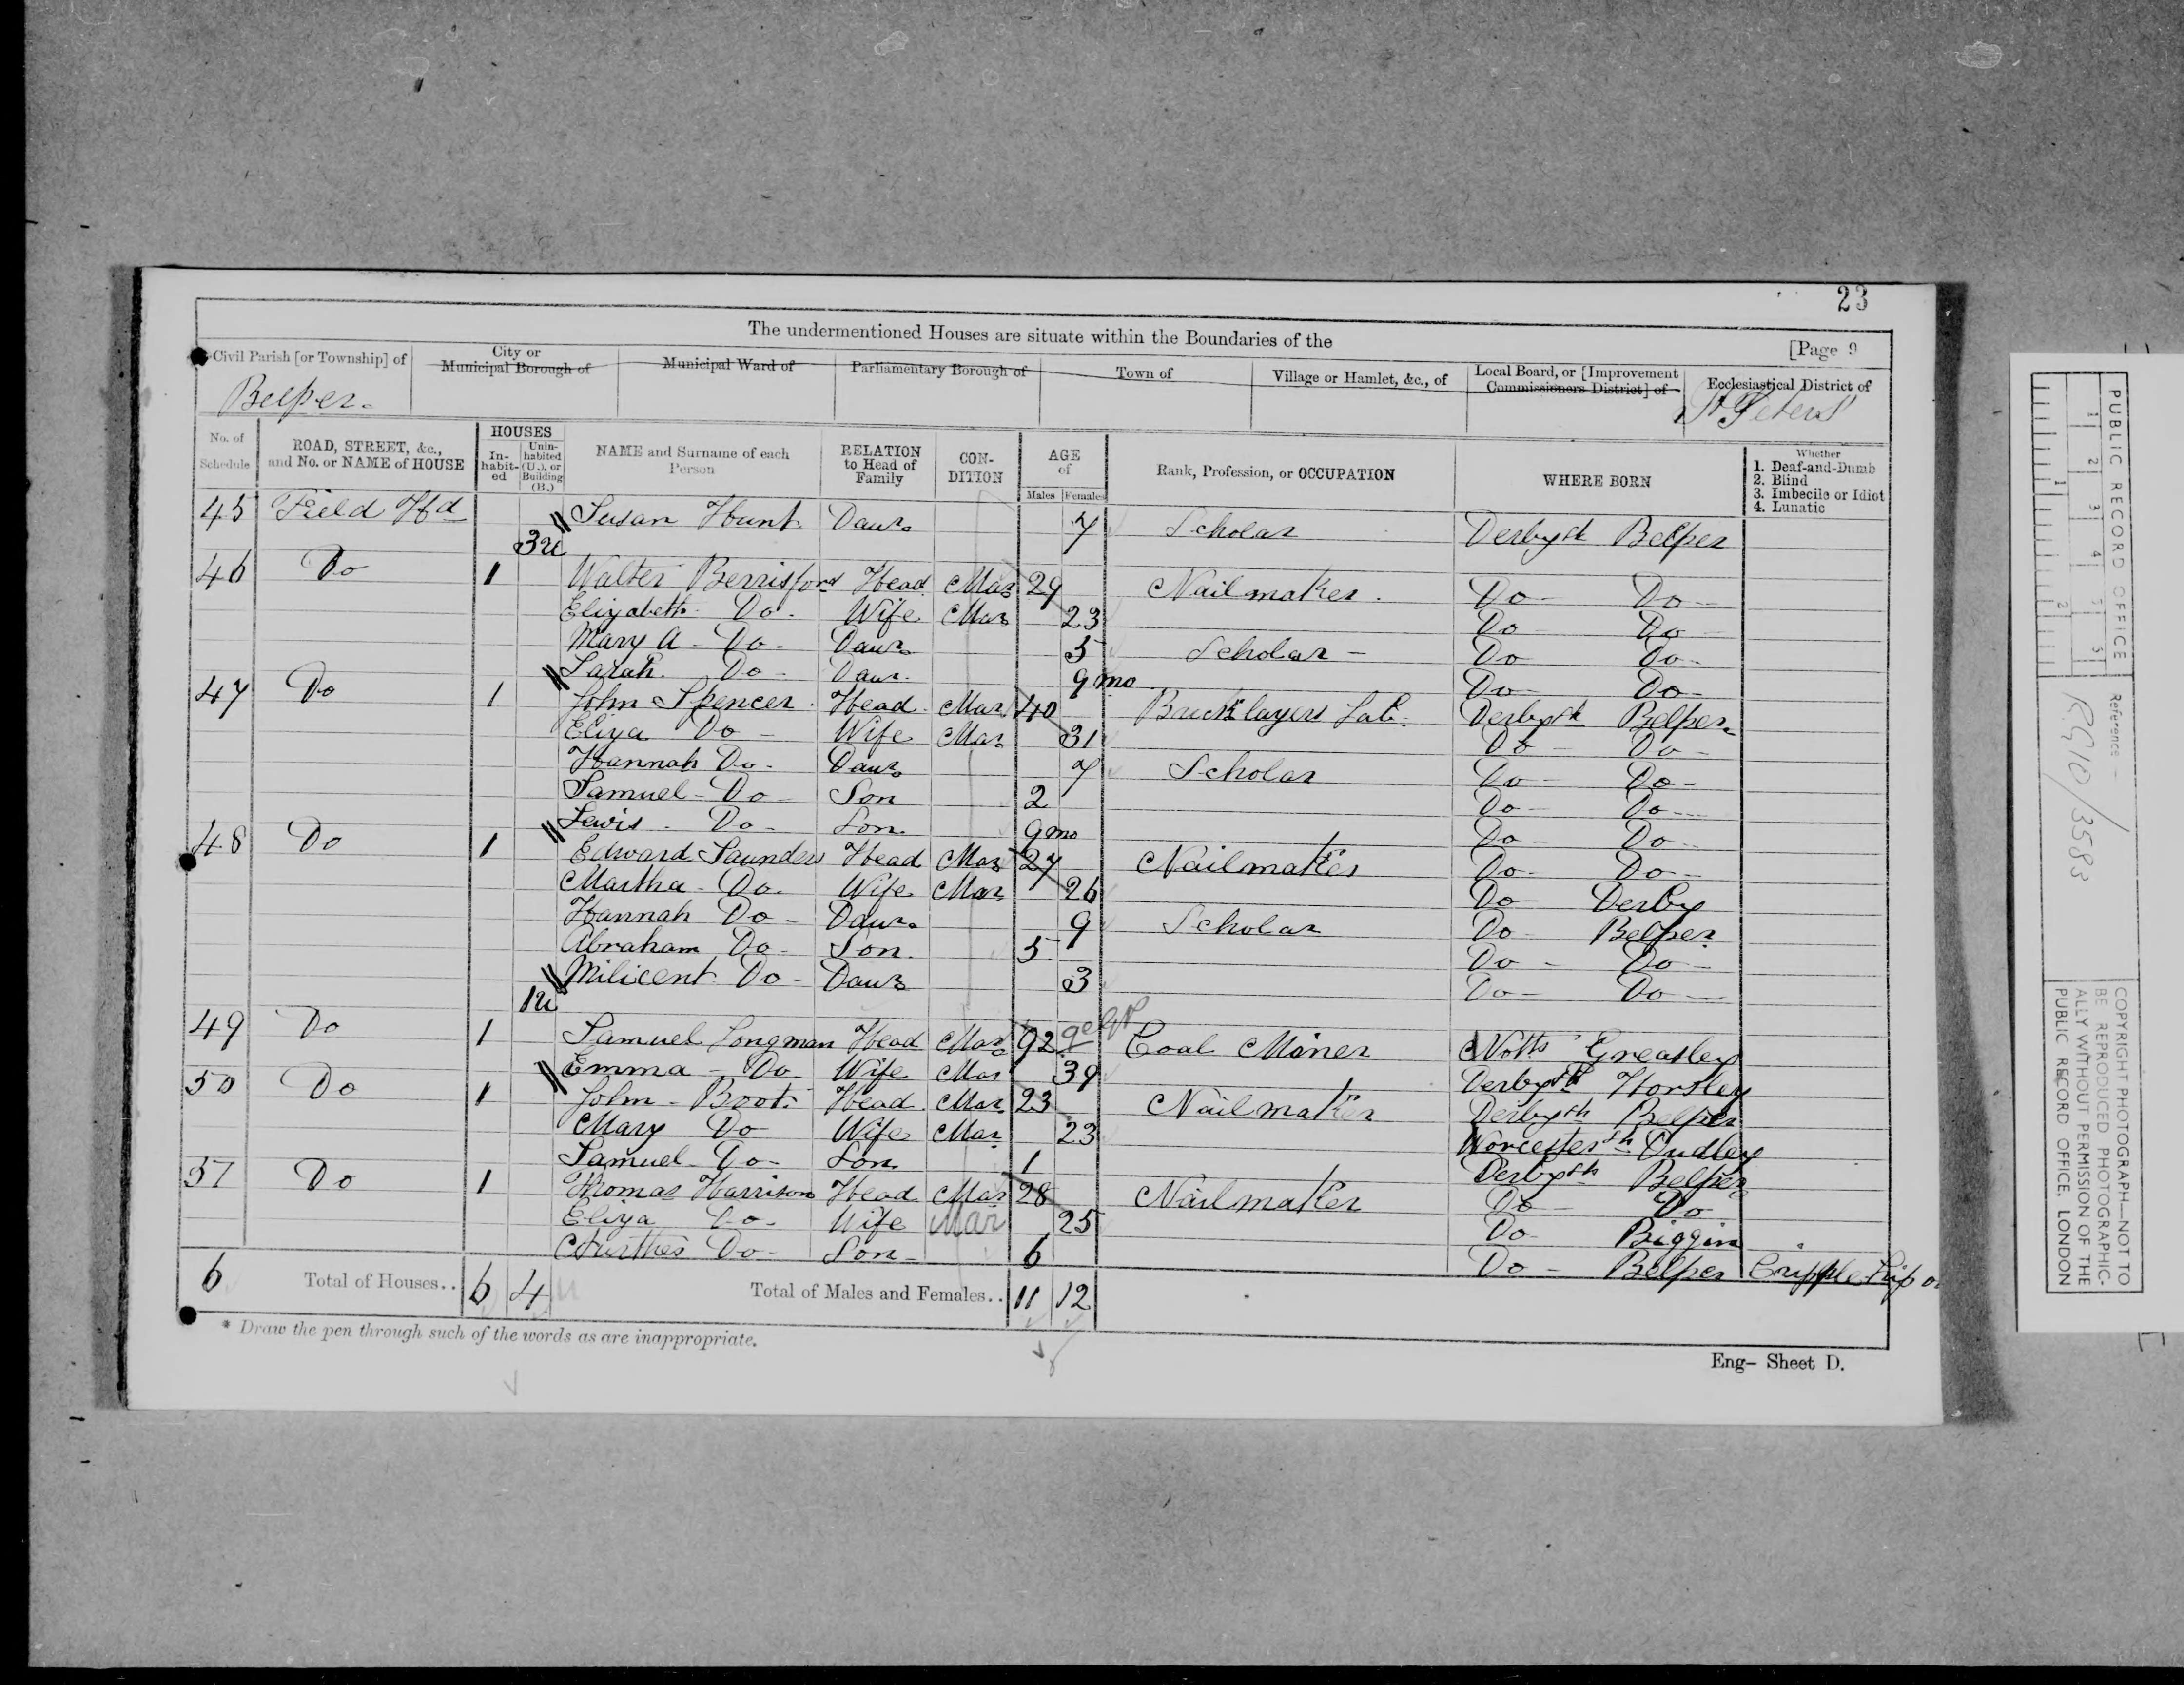 23
The undermentioned Houses are situate within the Boundaries of the
[Page 9
Civil Parish [or Township] of
City or Municipal Borough of
Municipal Ward of
Parliamentary Borough of
Town of
Village or Hamlet, &c., of
Local Board, or [Improvement Commissioners District] of
Ecclesiastical District of
Belper
St Peters
No. of Schedule
ROAD, STREET, &c., and No. or NAME of HOUSE
HOUSES
In-habit-ed
Unin-habited (U.), or Building (B.)
NAME and Surname of each Person
RELATION to Head of Family
CON-DITION
AGE of
Males Females
Rank, Profession, or OCCUPATION
WHERE BORN
Whether
1. Deaf-and-Dumb
2. Blind
3. Imbecile or Idiot
4. Lunatic
45 Field Hd Susan Hunt Daur 7 Scholar Derbysh Belper
3u
46 Do 1 Walter Berrisford Head Mar 29 Nailmaker Do Do
Elizabeth Do Wife Mar 23 Do Do
Mary A Do Daur 5 Scholar Do Do
Sarah Do Daur 9 mo Do Do
47 Do 1 John Spencer Head Mar 40 Bricklayers Lab Derbysh Belper
Eliza Do Wife Mar 31 Do Do
Hannah Do Daur 7 Scholar Do Do
Samuel Do Son 2 Do Do
Lewis Do Son 9 mo Do Do
48 Do 1 Edward Saunders Head Mar 27 Nailmaker Do Do
Martha Do Wife Mar 26 Do Derby
Hannah Do Daur 9 Scholar Do Belper
Abraham Do Son 5 Do Do
Milicent Do Daur 3 Do Do
1u
49 Do 1 Samuel Longman Head Mar 92 Coal Miner Notts Greasley
Emma Do Wife Mar 39 Derbysh Horsley
50 Do 1 John Boot Head Mar 23 Nailmaker Derbysh Belper
Mary Do Wife Mar 23 Worcestersh Dudley
Samuel Do Son 1 Derbysh Belper
51 Do 1 Thomas Harrison Head Mar 28 Nailmaker Do Do
Eliza Do Wife Mar 25 Do Biggin
Do Son 6 Do Belper Cripple
6 Total of Houses.. 6 4 Total of Males and Females.. 11 12
* Draw the pen through such of the words as are inappropriate.
Eng- Sheet D.
PUBLIC RECORD OFFICE
1 2 3 4 5
1 2
Reference
RG10/3583
COPYRIGHT PHOTOGRAPH—NOT TO BE REPRODUCED PHOTOGRAPHIC-ALLY WITHOUT PERMISSION OF THE PUBLIC RECORD OFFICE, LONDON